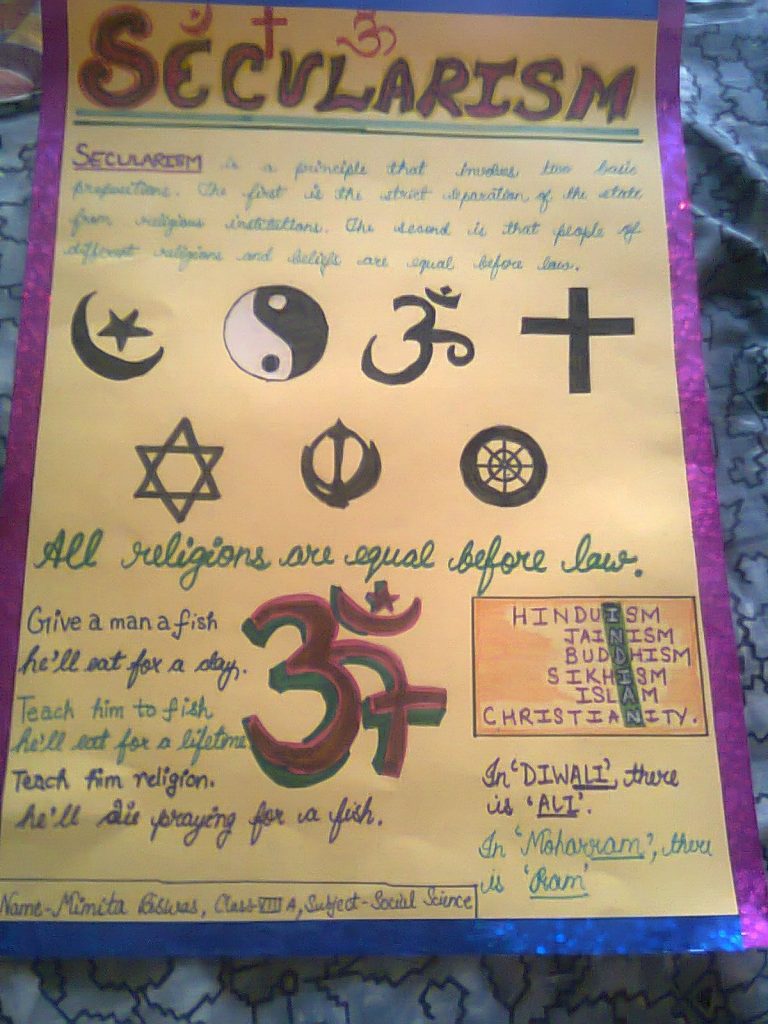 SECULARISM
SECULARISM is a principle that involves two basic
propositions. The first is the strict separation of the state
from religious institutions. The second is that people of
different religions and beliefs are equal before law.
All religions are equal before law.
Give a man a fish
he'll eat for a day.
Teach him to fish
he'll eat for a lifetime
Teach him religion.
he'll die praying for a fish.
HINDUISM
JAINISM
BUDDHISM
SIKHISM
ISLAM
CHRISTIANITY.
In 'DIWALI', there
is 'ALI'.
In 'Moharram', there
is 'Ram'
Name-Mimita Biswas, Class-VIII A, Subject-Social Science